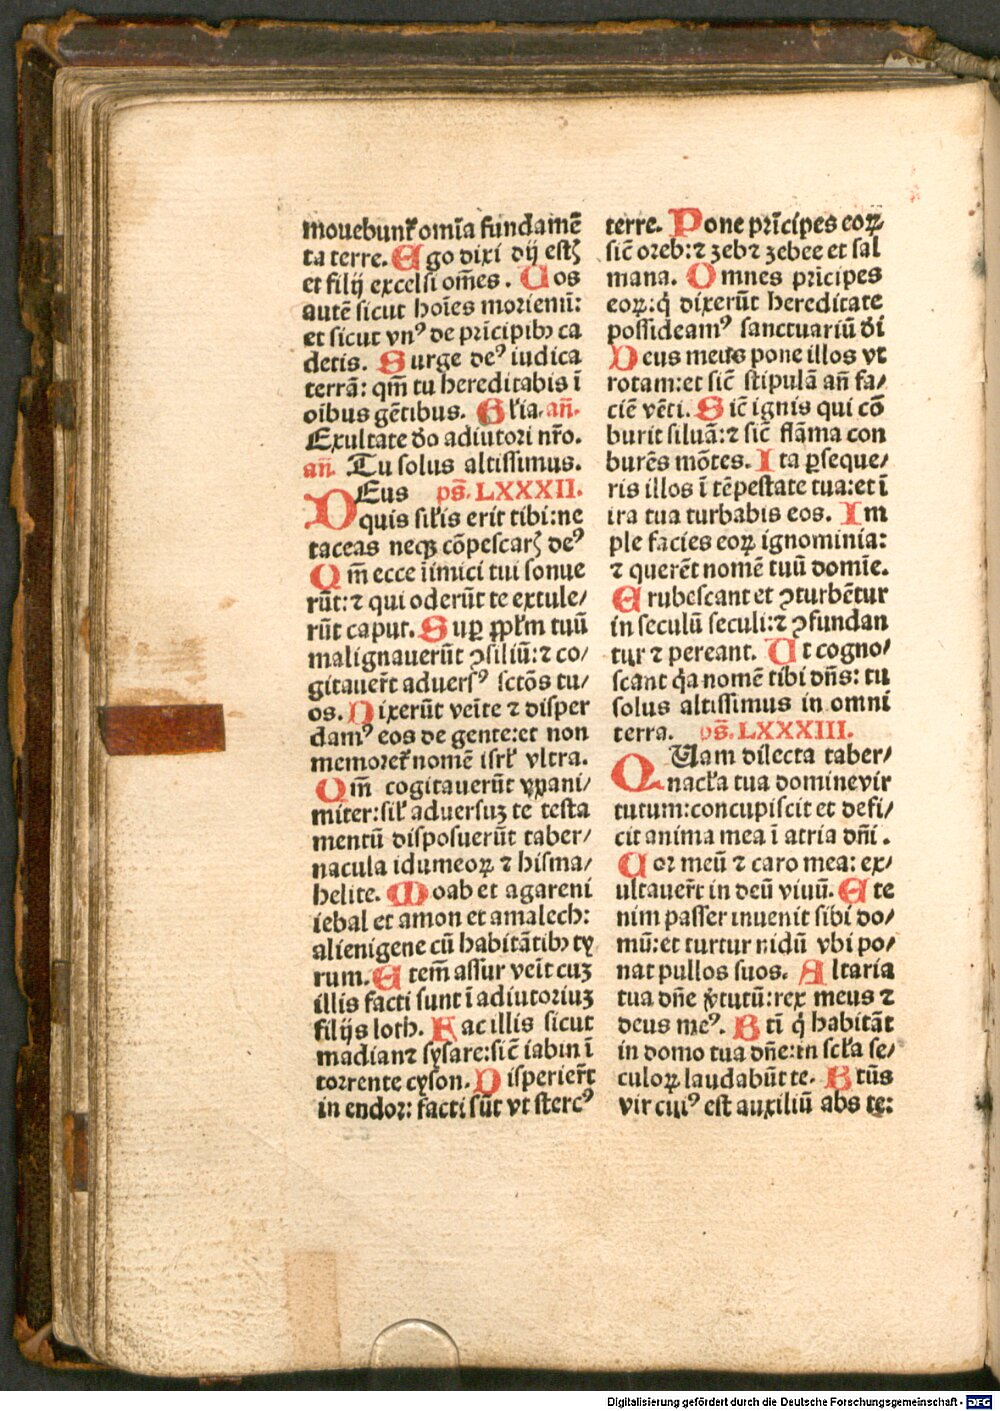 mouebunt᷑ om̄ia fundamē
ta terre. Ego dixi dij estꝭ
et filij excelsi om̄es. Uos
autē sicut hoīes moriemī:
et sicut vnꝰ de prīcipibꝫ ca
detis. Surge deꝰ iudica
terrā: qm̄ tu hereditabis ī
oībus gētibus. Gl'ia. an̄.
Exultate do adiutori nr̄o.
an̄. Tu solus altissimus.
DEus ps̄. LXXXII.
quis sil'is erit tibi: ne
taceas neqꝫ cōpescarꝭ deꝰ
Qm̄ ecce iīmici tui sonue
rūt: ⁊ qui oderūt te extule/
rūt caput. Suꝑ ꝓpl'm tuū
malignauerūt ꝯsiliū: ⁊ co/
gitauer̄t aduersꝰ sctōs tu/
os. Dixerūt veīte ⁊ disper
damꝰ eos de gente: et non
memoret᷑ nomē isrl' vltra.
Qm̄ cogitauerūt vnani/
miter: sil' aduersuꝫ te testa
mentū disposuerūt taber/
nacula idumeoꝝ ⁊ hisma/
helite. Moab et agareni
iebal et amon et amalech:
alienigene cū habitātibꝫ ty
rum. Etem̄ assur veīt cuꝫ
illis facti sunt ī adiutoriuꝫ
filijs loth. Fac illis sicut
madian⁊ sysare: sic̄ iabin ī
torrente cyson. Disperier̄t
in endor: facti sūt vt stercꝰ
terre. Pone prīcipes eoꝝ
sic̄ oreb: ⁊ zeb ⁊ zebee et sal
mana. Omnes prīcipes
eoꝝ: q̇ dixerūt hereditate
possideamꝰ sanctuariū di
Deus meus pone illos vt
rotam: et sic̄ stipulā an̄ fa/
ciē vēti. Sic̄ ignis qui cō
burit siluā: ⁊ sic̄ flāma con
burēs mōtes. Ita ꝑseque/
ris illos ī tēpestate tua: et ī
ira tua turbabis eos. Im
ple facies eoꝝ ignominia:
⁊ querēt nomē tuū domīe.
Erubescant et ꝯturbētur
in seculū seculi: ⁊ ꝯfundan
tur ⁊ pereant. Ut cogno/
scant q̇a nomē tibi dn̄s: tu
solus altissimus in omni
terra. ps̄. LXXXIII.
QUam dilecta taber/
nacl'a tua domine vir
tutum: concupiscit et defi/
cit anima mea ī atria dn̄i.
Cor meū ⁊ caro mea: ex/
ultauer̄t in deū viuū. Ete
nim passer inuenit sibi do/
mū: et turtur nidū vbi po/
nat pullos suos. Altaria
tua dn̄e v̇tutū: rex meus ⁊
deus meꝰ. Btī q̇ habitāt
in domo tua dn̄e: in scl'a se/
culoꝝ laudabūt te. Btūs
vir cuiꝰ est auxiliū abs te:
Digitalisierung gefördert durch die Deutsche Forschungsgemeinschaft - DFG